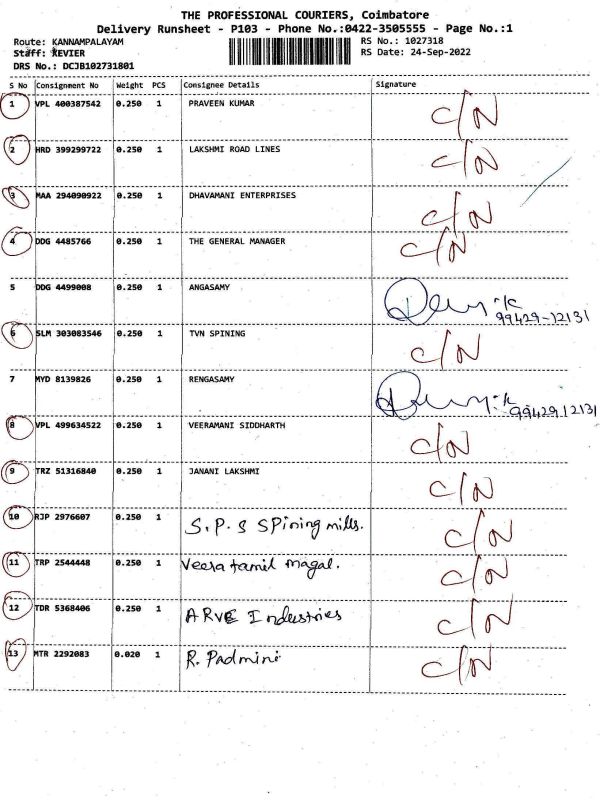 THE PROFESSIONAL COURIERS, Coimbatore
Delivery Runsheet - P103 - Phone No.:0422-3505555 - Page No.:1
Route: KANNAMPALAYAM RS No.: 1027318
Staff: XEVIER RS Date: 24-Sep-2022
DRS No.: DCJB102731801
S No Consignment No Weight PCS Consignee Details Signature
1 VPL 400387542 0.250 1 PRAVEEN KUMAR C/N
2 HRD 399299722 0.250 1 LAKSHMI ROAD LINES C/N
3 MAA 294090922 0.250 1 DHAVAMANI ENTERPRISES C/N
4 DDG 4485766 0.250 1 THE GENERAL MANAGER C/N
5 DDG 4499008 0.250 1 ANGASAMY 99429-12131
6 SLM 303083546 0.250 1 TVN SPINING C/N
7 MYD 8139826 0.250 1 RENGASAMY 9942912131
8 VPL 499634522 0.250 1 VEERAMANI SIDDHARTH C/N
9 TRZ 51316840 0.250 1 JANANI LAKSHMI C/N
10 RJP 2976607 0.250 1 S.P.S SPining mills. C/N
11 TRP 2544448 0.250 1 Veera tamil magal. C/N
12 TDR 5368406 0.250 1 ARVE Industries C/N
13 MTR 2292083 0.020 1 R. Padmini C/N